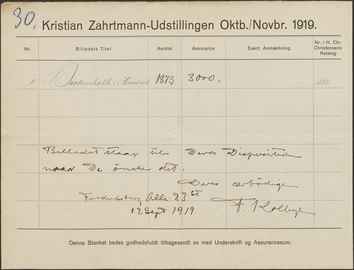 30. Kristian Zahrtmann-Udstillingen Oktb./Novbr. 1919.
Nr. Billedets Titel Aarstal Assurance Event. Anmærkning Nr. i H. Chr. Christensens Katalog
1873 3000.
Billedet staar til Deres Disposition
naar De ønsker det.
Deres ærbødige
Allé 23
12 Sept 1919
Denne Blanket bedes godhedsfuldt tilbagesendt os med Underskrift og Assurancesum.